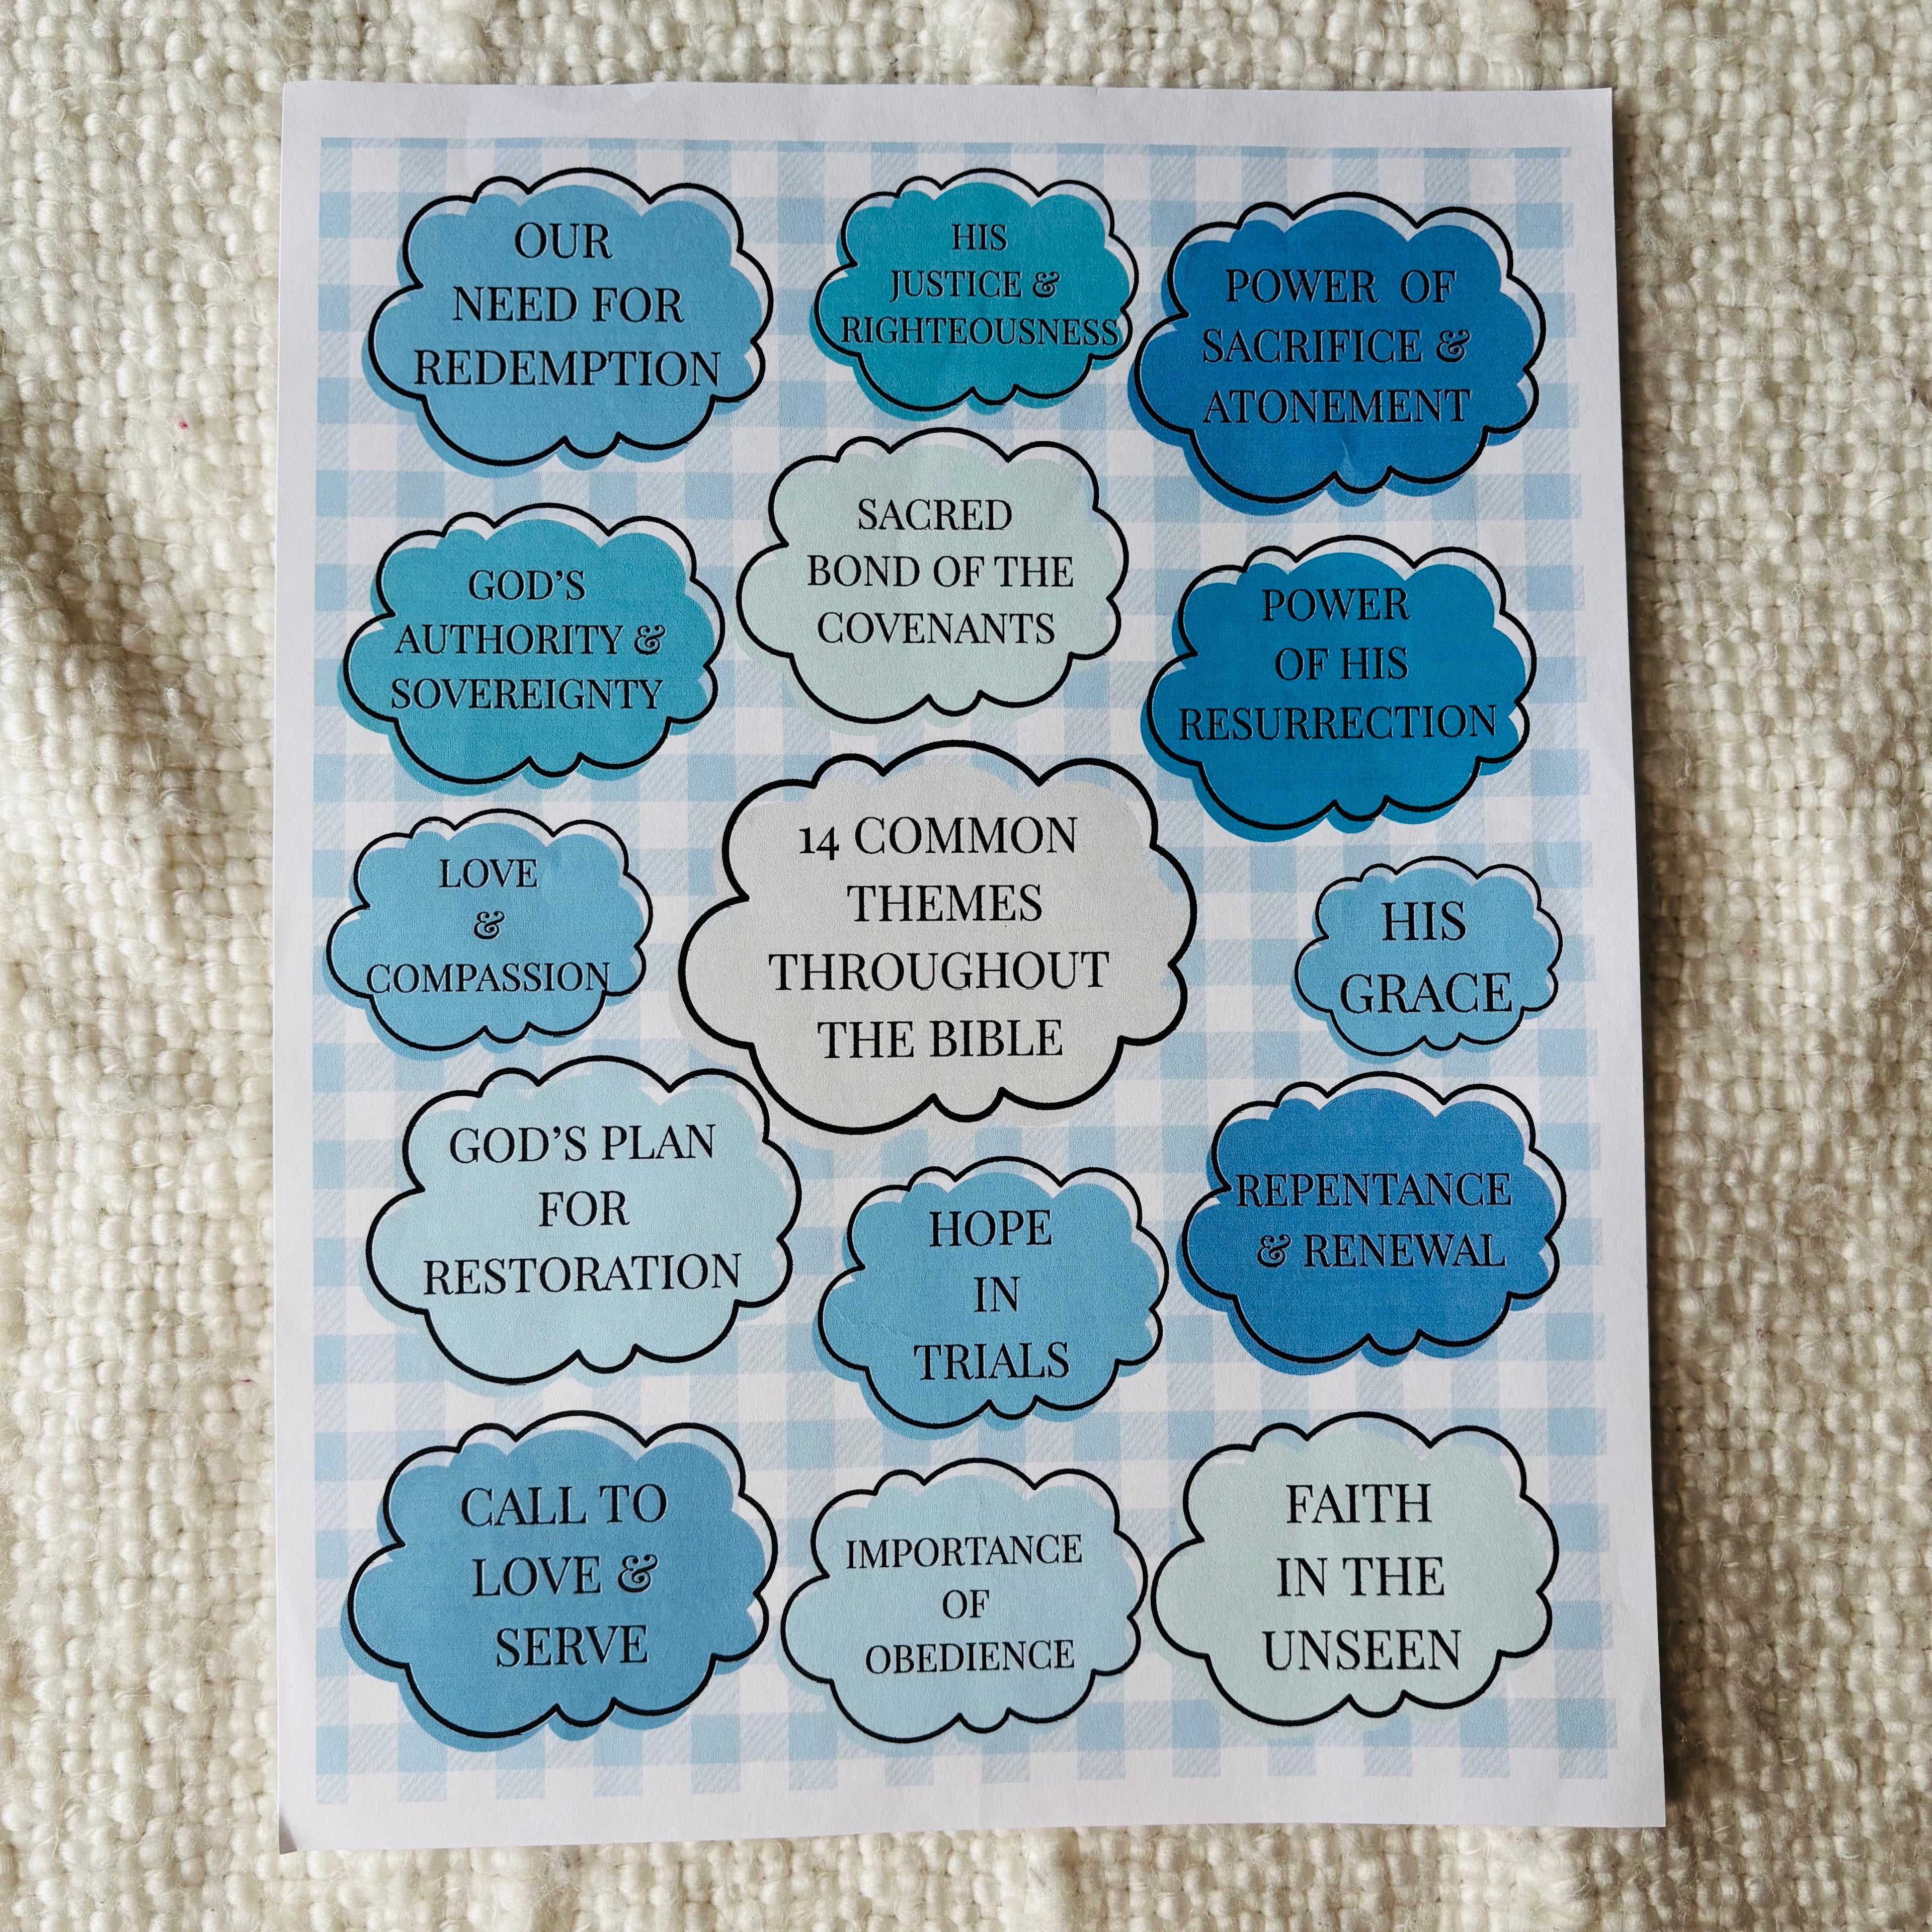 OUR
NEED FOR
REDEMPTION
HIS
JUSTICE &
RIGHTEOUSNESS
POWER OF
SACRIFICE &
ATONEMENT
GOD'S
AUTHORITY &
SOVEREIGNTY
SACRED
BOND OF THE
COVENANTS
POWER
OF HIS
RESURRECTION
LOVE
&
COMPASSION
14 COMMON
THEMES
THROUGHOUT
THE BIBLE
HIS
GRACE
GOD'S PLAN
FOR
RESTORATION
HOPE
IN
TRIALS
REPENTANCE
& RENEWAL
CALL TO
LOVE &
SERVE
IMPORTANCE
OF
OBEDIENCE
FAITH
IN THE
UNSEEN